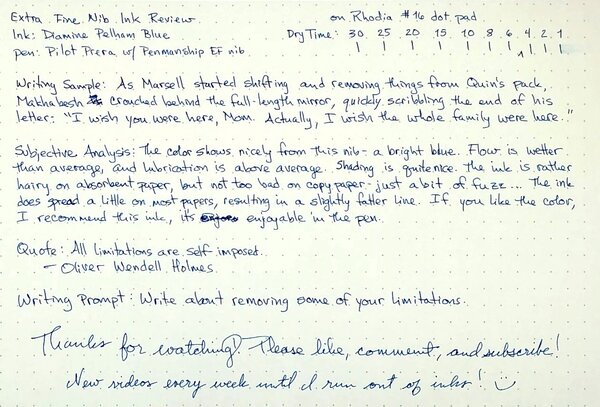 Extra Fine Nib Ink Review on Rhodia #16 dot pad
Ink: Diamine Pelham Blue Dry Time: 30 25 20 15 10 8 6 4 2 1
Pen: Pilot Prera w/ Penmanship EF nib
Writing Sample: As Marsell started shifting and removing things from Quin's pack,
Makhabesh crouched behind the full-length mirror, quickly scribbling the end of his
letter: "I wish you were here, Mom. Actually, I wish the whole family were here."
Subjective Analysis: The color shows nicely from this nib - a bright blue. Flow is wetter
than average, and lubrication is above average. Shading is quite nice. The ink is rather
hairy on absorbent paper, but not too bad on copy paper - just a bit of fuzz... The ink
does spread a little on most papers, resulting in a slightly fatter line. If you like the color,
I recommend this ink, it's enjoyable in the pen.
Quote: All limitations are self imposed.
- Oliver Wendell Holmes
Writing Prompt: Write about removing some of your limitations.
Thanks for watching! Please like, comment, and subscribe!
New videos every week until I run out of inks!